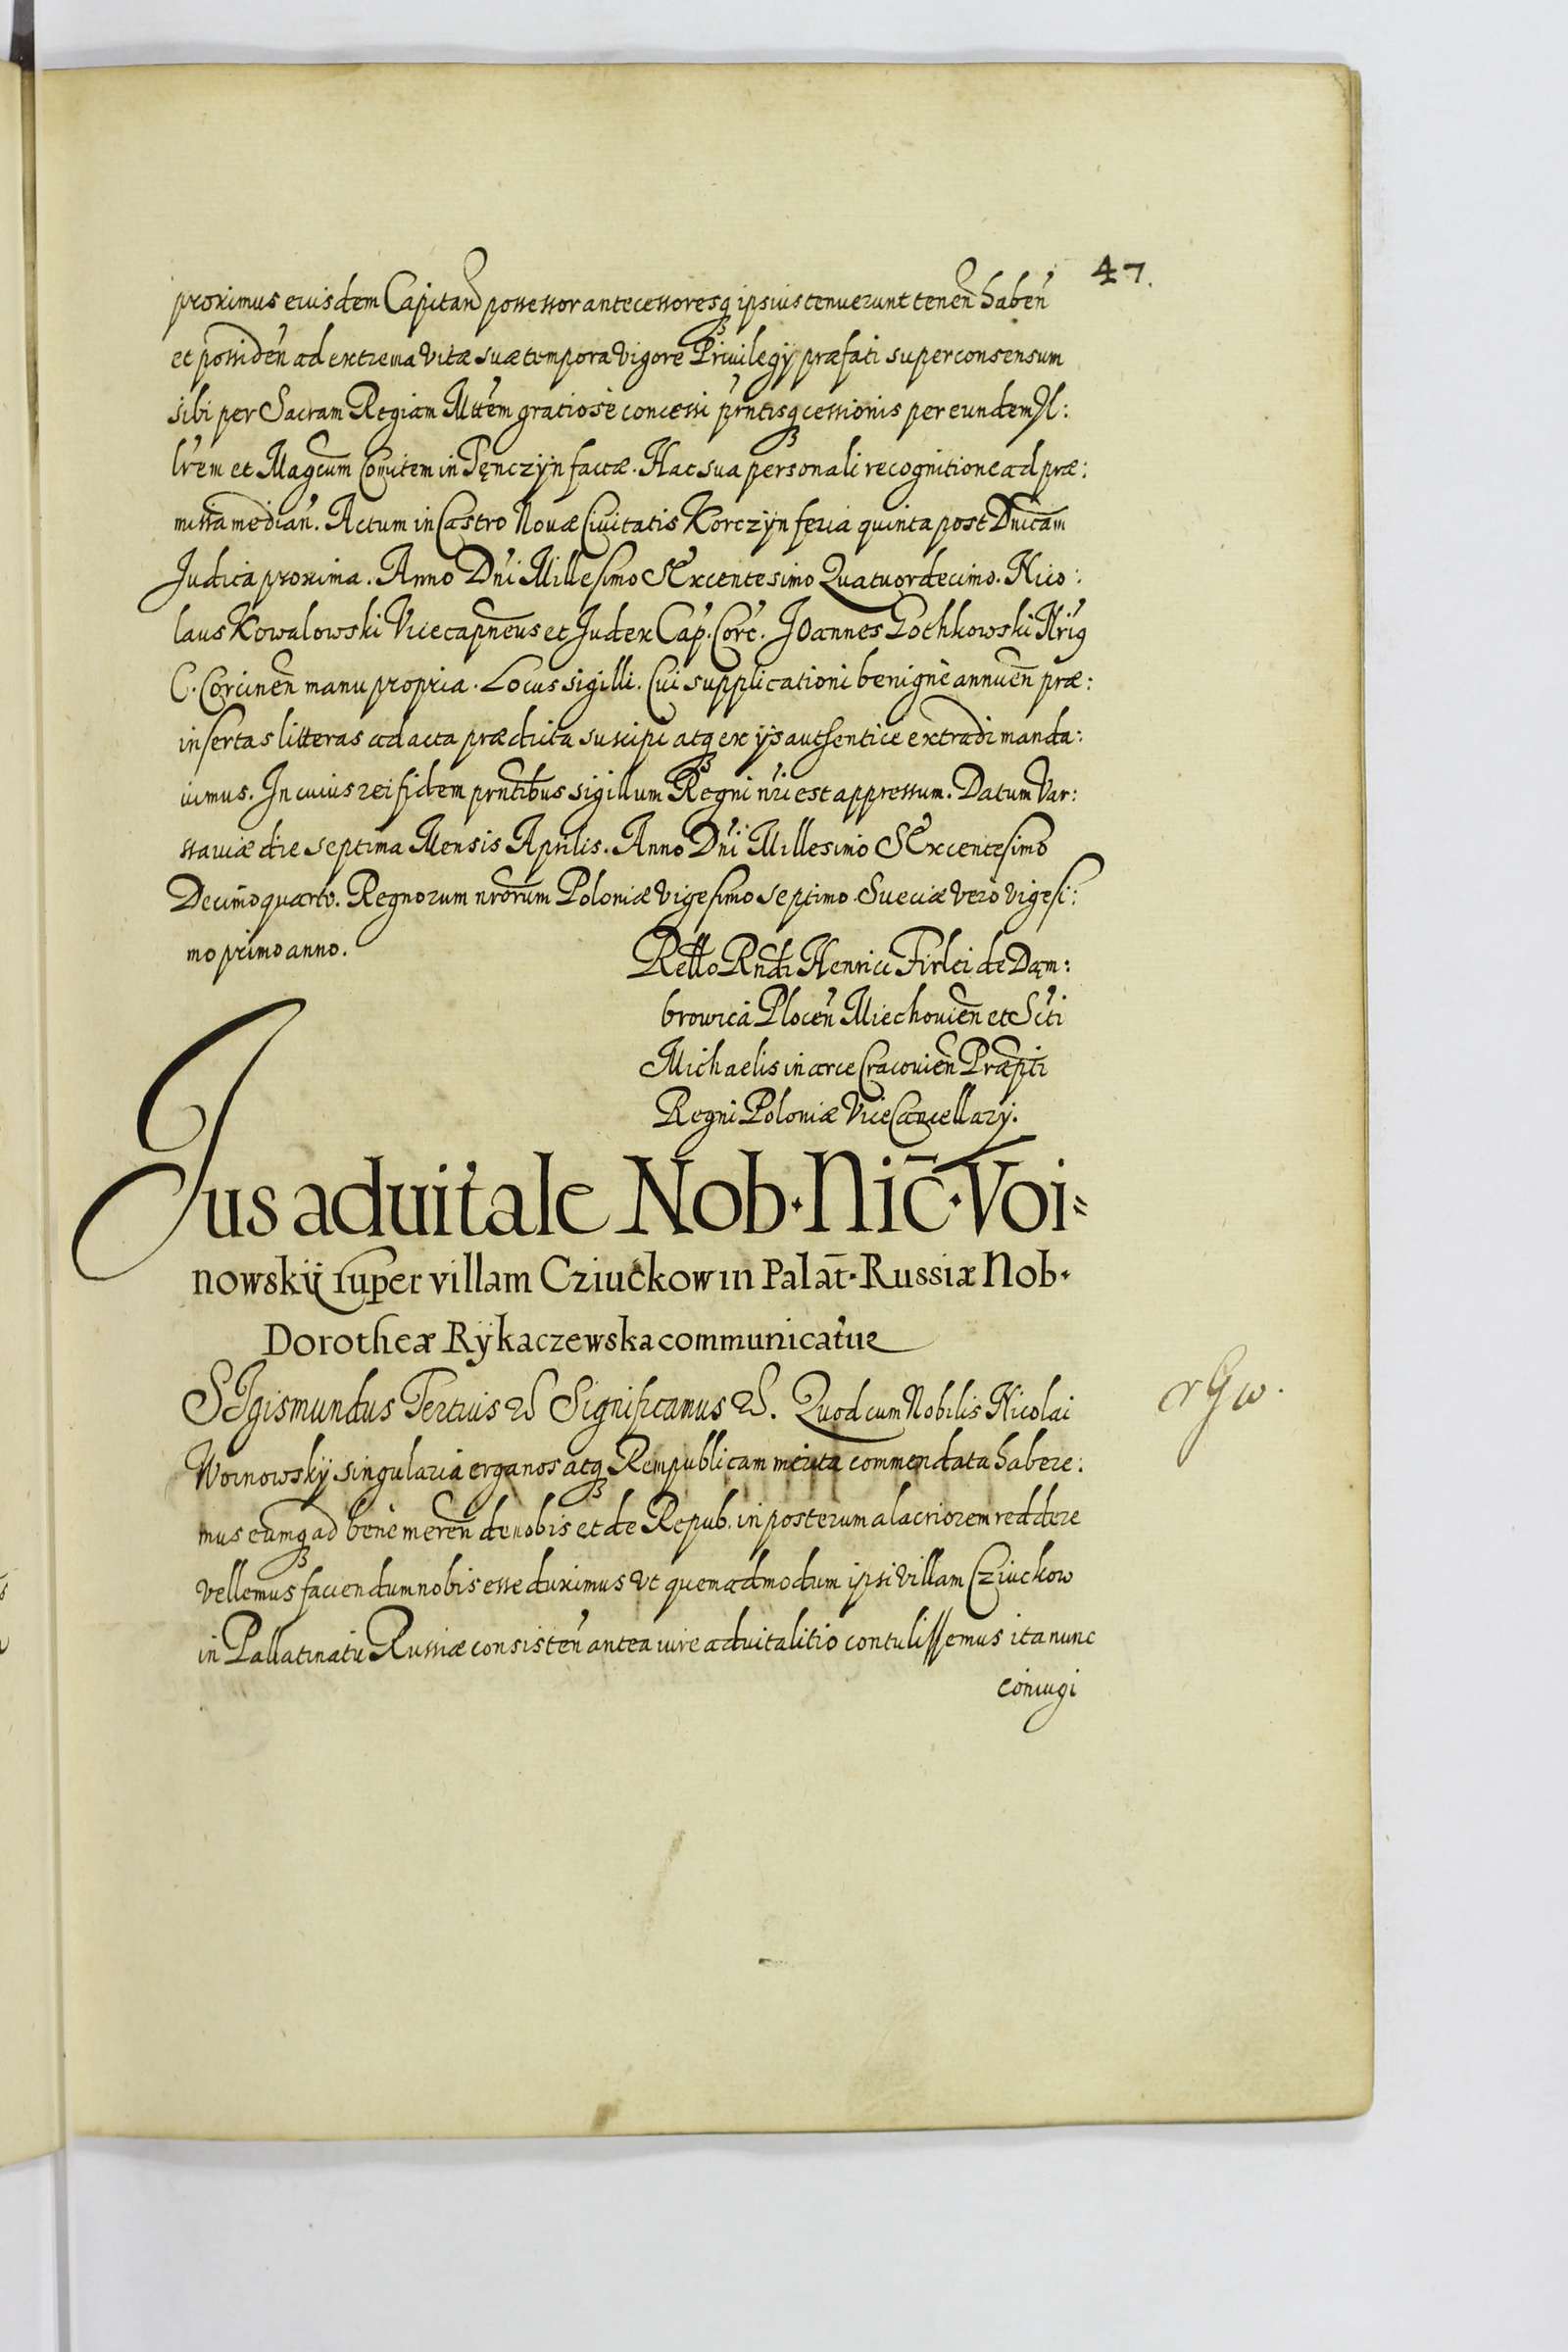 47.
proximus eiusdem Capitan possessor antecessoresq ipsius tenuerunt tenen haben
et possiden ad extrema vitæ suæ tempora vigore Privilegÿ præfati super consensum
sibi per Sacram Regiam Mttem gratiosè concessi prntisq cessionis per eundem Il:
lrem et Magcum Comitem in Tęnczÿn factæ. Hac sua personali recognitione ad præ:
missa median. Actum in Castro Novæ Civitatis Korczÿn feria quinta post Dnicam
Judica proxima. Anno Dni Millesimo SExcentesimo Quatuordecimo. Nico:
laus Kowalowski Vicecapneus et Judex Cap. Corc. JOannes Gothkowski Nrig
C. Corcinen manu propria. Locus sigilli. Cui supplicationi benignè annuen præ:
insertas litteras ad acta prædicta suscipi atq ex ÿs authentice extradi manda:
uimus. In cuius rei fidem prntibus sigillum Regni nri est appressum. Datum Var:
ssauiæ die septima Mensis Aprilis. Anno Dni Millesimo SExcentesimo
Decimoquarto. Regnorum nrorum Poloniæ vigesimo septimo. Sueciæ verò vigesi:
mo primo anno.
Retto Rndi Henrici Firlei de Dąm:
browica Plocen Miechouien et Scti
Michaelis in arce Cracouien Præpti
Regni Poloniæ ViceCancellarÿ.
Jus aduitale Nob. Nic. Voi=
nowskÿ super villam Cziuckow in Palat. Russiæ Nob.
Dorotheæ Rÿkaczewska communicatur
SIgismundus Tertius &c Significamus &c. Quod cum Nobilis Nicolai
Woinowskÿ singularia erga nos atq Rempublicam merita commendata habere:
mus eumq ad bene meren de nobis et de Repub. in posterum alacriorem reddere
vellemus faciendum nobis esse duximus vt quemadmodum ipsi villam Cziuckow
in Pallatinatu Russiæ consisten antea iure aduitalitio contulissemus ita nunc
coniugi